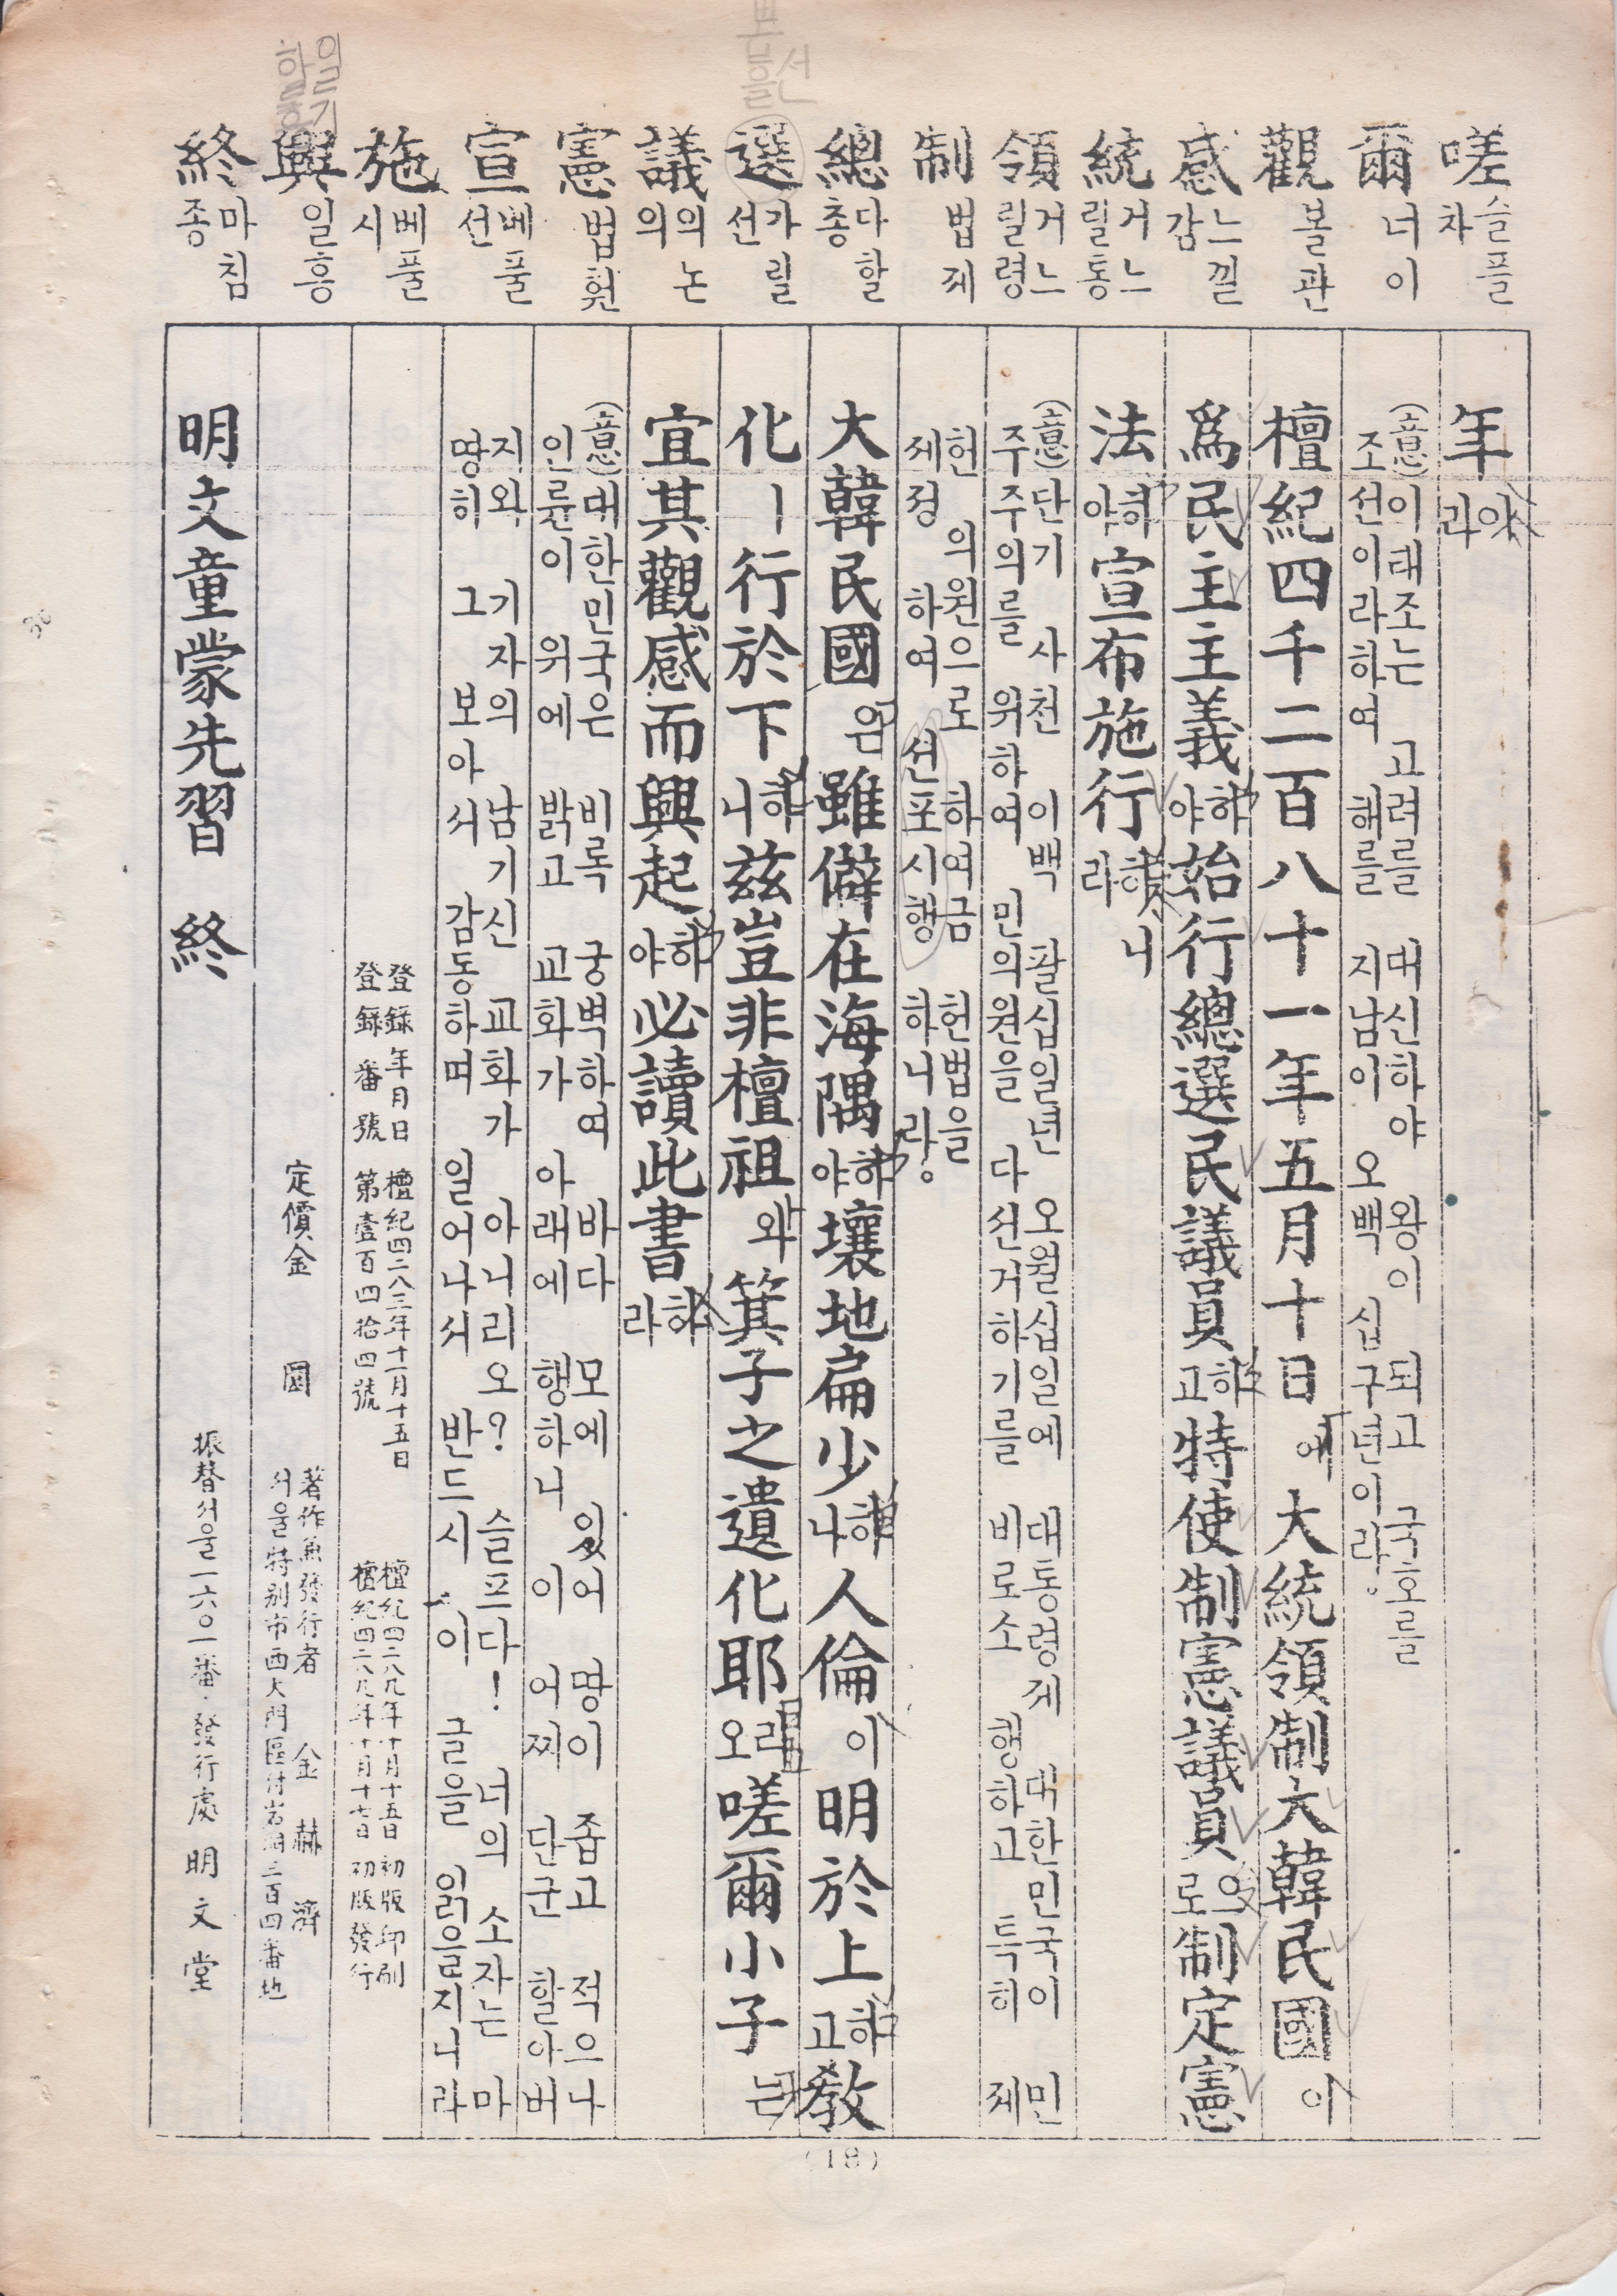 嗟 슬플 차
爾 너 이
觀 볼 관
感 느낄 감
統 거느릴 통
領 거느릴 령
制 법 제
總 다 할 총
選 가릴 선
議 의논 의
憲 법 헌
宣 베풀 선
施 베풀 시
興 일 흥
終 마침 종
年이라
(意)이래조는 고려를 대신하야 왕이 되고 국호를
조선이라하여 해를 지남이 오백 십구년이라。
檀紀四千二百八十一年五月十日에 大統領制大韓民國이
爲民主主義하야 始行總選民議員하고 特使制憲議員으로 制定憲
法하야 宣布施行하니라
(意)단기 사천 이백 팔십일년 오월십일에 대통령제 대한민국이 민
주주의를 위하여 민의원을 다 선거하기를 비로소 행하고 특히 제
헌 의원으로 하여금 헌법을
제정 하여 선포시행 하니라。
大韓民國은 雖僻在海隅하야 壤地扁少하나 人倫이 明於上하고 敎
化ㅣ行於下하니 玆豈非檀祖와 箕子之遺化耶리오 嗟爾小子는
宜其觀感而興起하야 必讀此書하라
(意)대한민국은 비록 궁벽하여 바다 모에 있어 땅이 좁고 적으나
인륜이 위에 밝고 교화가 아래에 행하니 이 어찌 단군 할아버
지와 기자의 남기신 교화가 아니리오? 슬프다! 너의 소자는 마
땅히 그 보아서 감동하며 일어나서 반드시 이 글을 읽을지니라
登錄年月日 檀紀四二八三年十一月十五日
登錄番號 第壹百四拾四號
檀紀四二八九年十月十五日 初版印刷
檀紀四二八九年十月十七日 初版發行
定價金 圜
著作兼發行者 金赫濟
서울特別市西大門區付岩洞三百四番地
明文童蒙先習 終
振替서울一六〇一番·發行處 明文堂
(18)